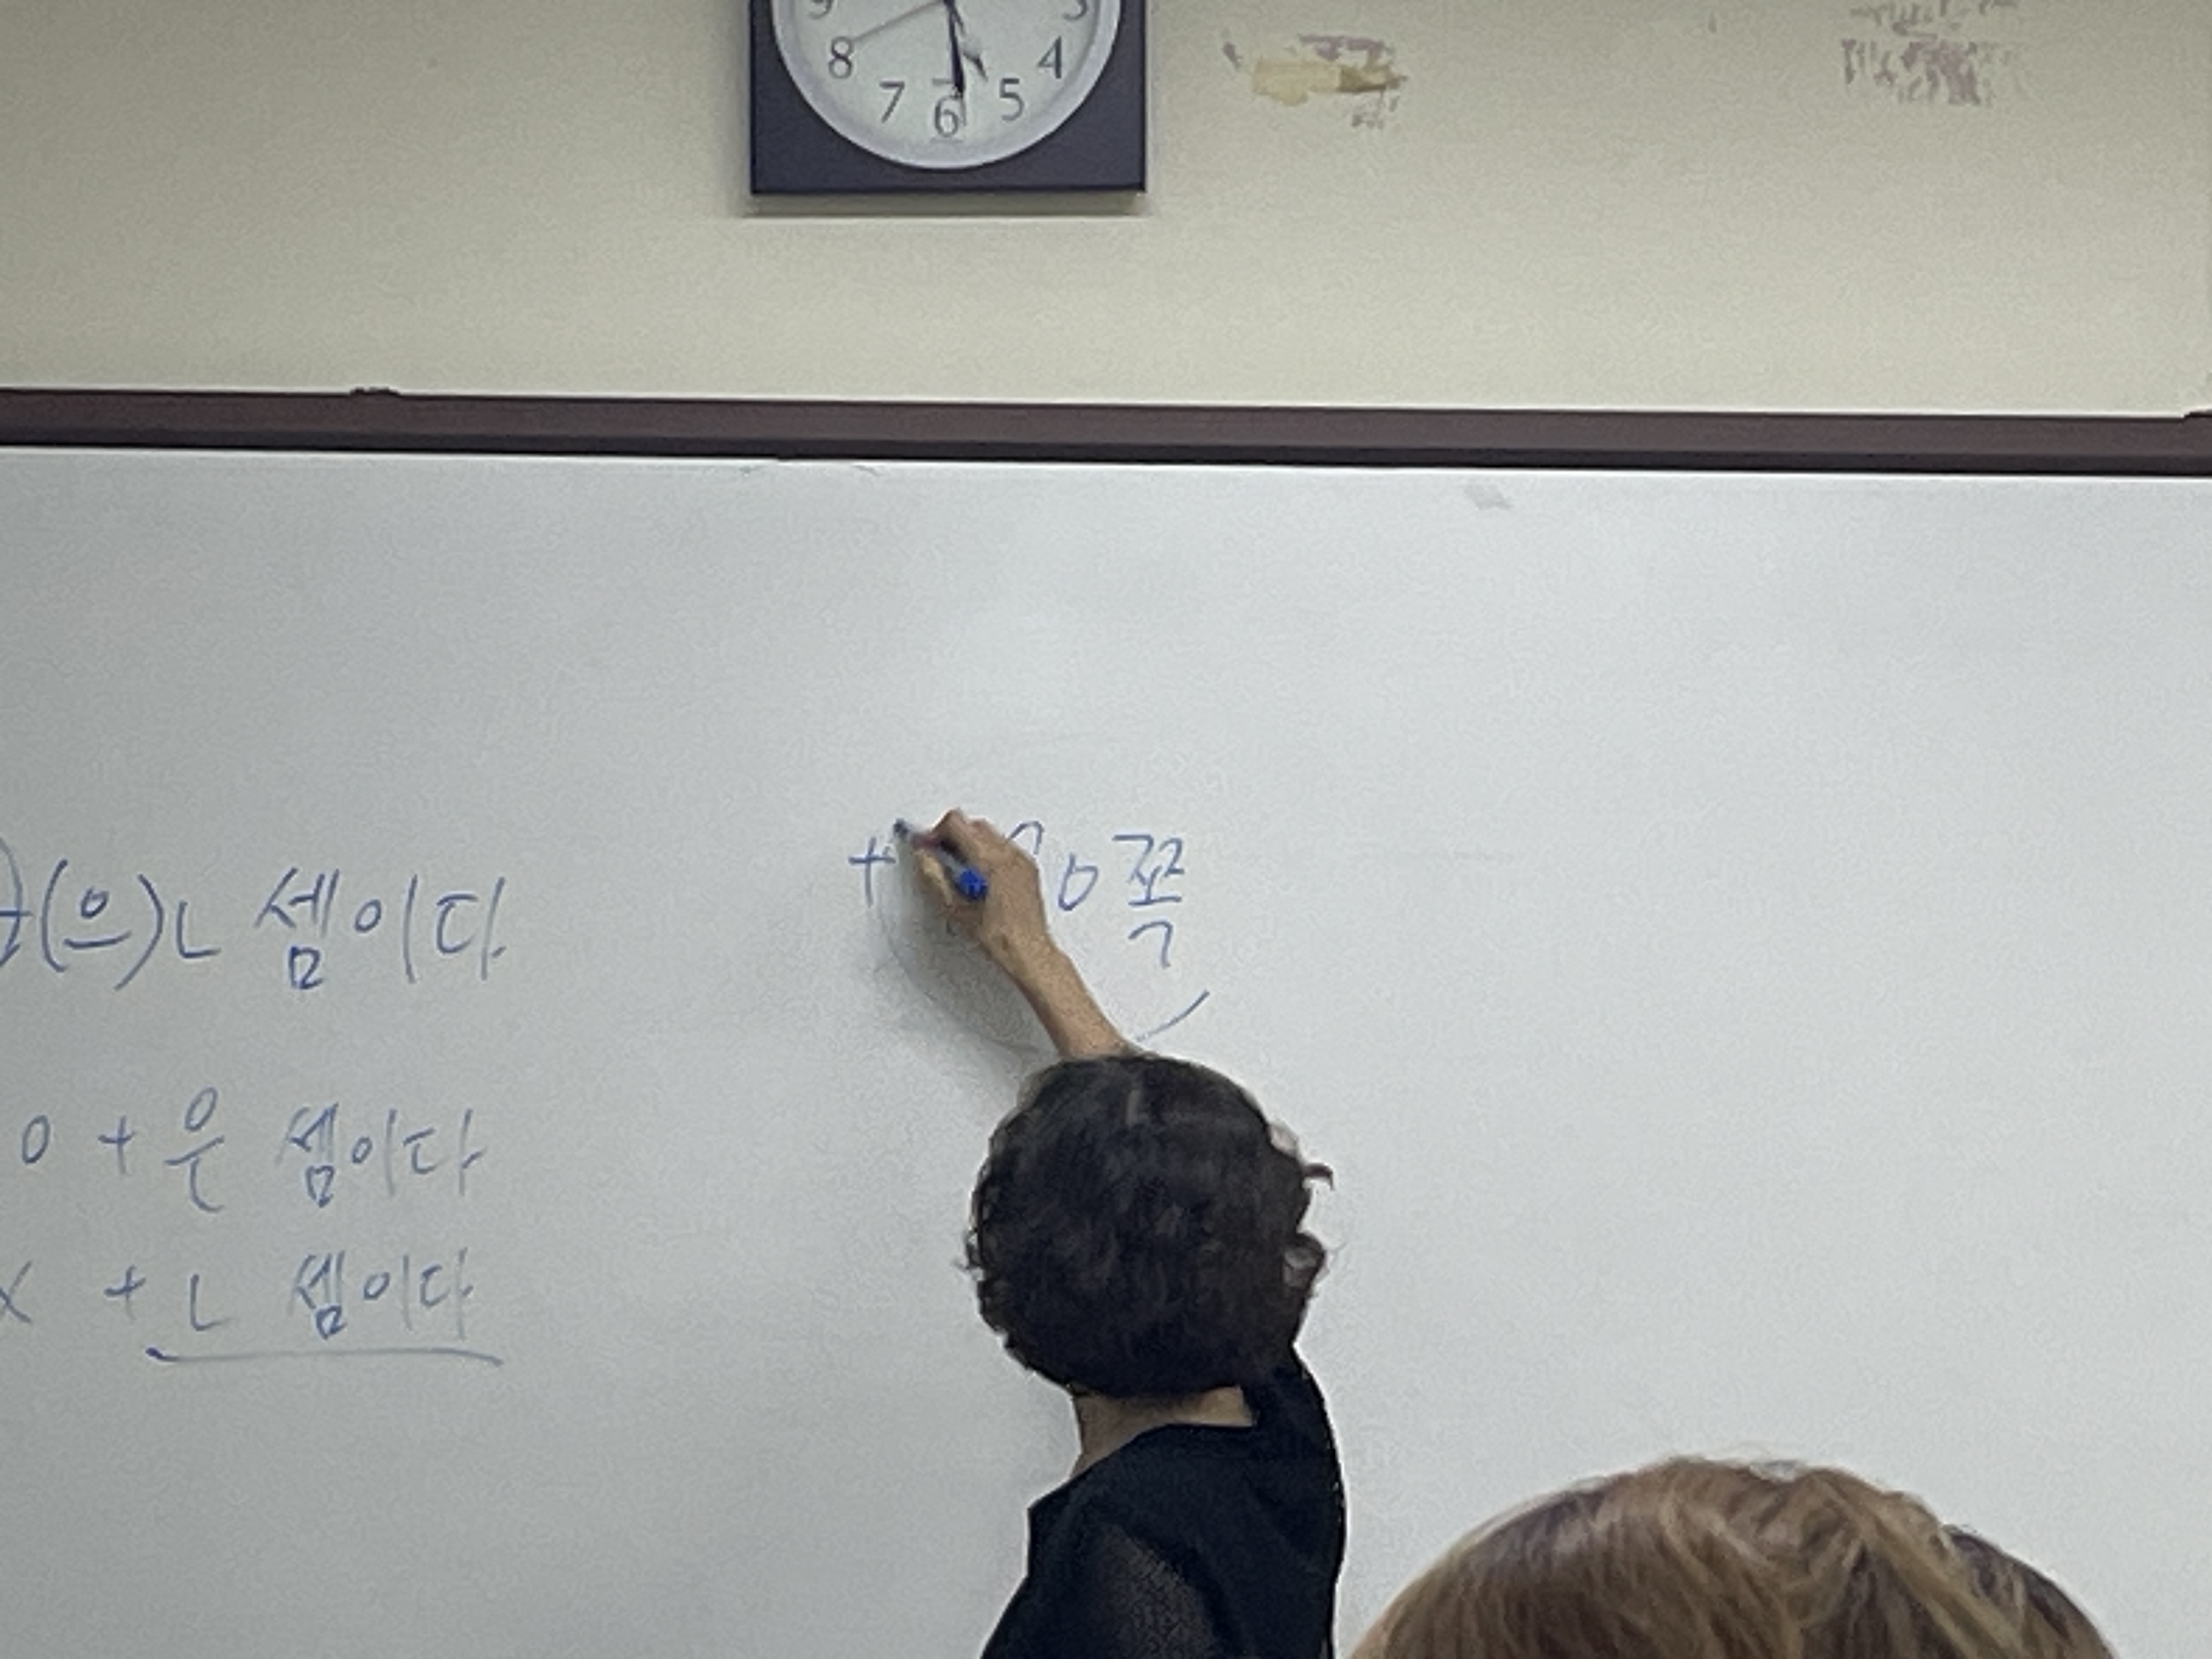 9 3
8 4
7 6 5
(으)ㄴ 셈이다
+
쪽
ㅇ + 은 셈이다
x + ㄴ 셈이다